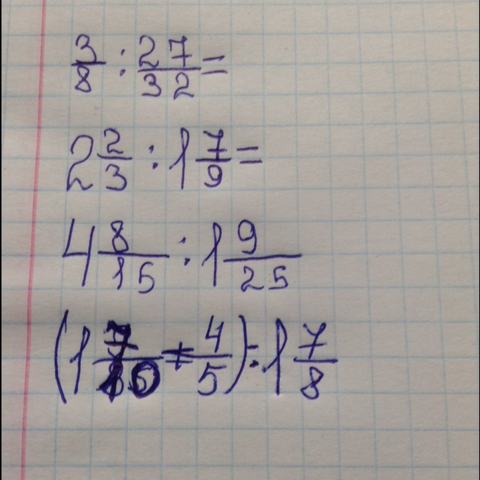 3/8 : 27/32 =
2 2/3 : 1 7/9 =
4 8/15 : 1 9/25
(1 7/10 + 4/5) : 1 7/8